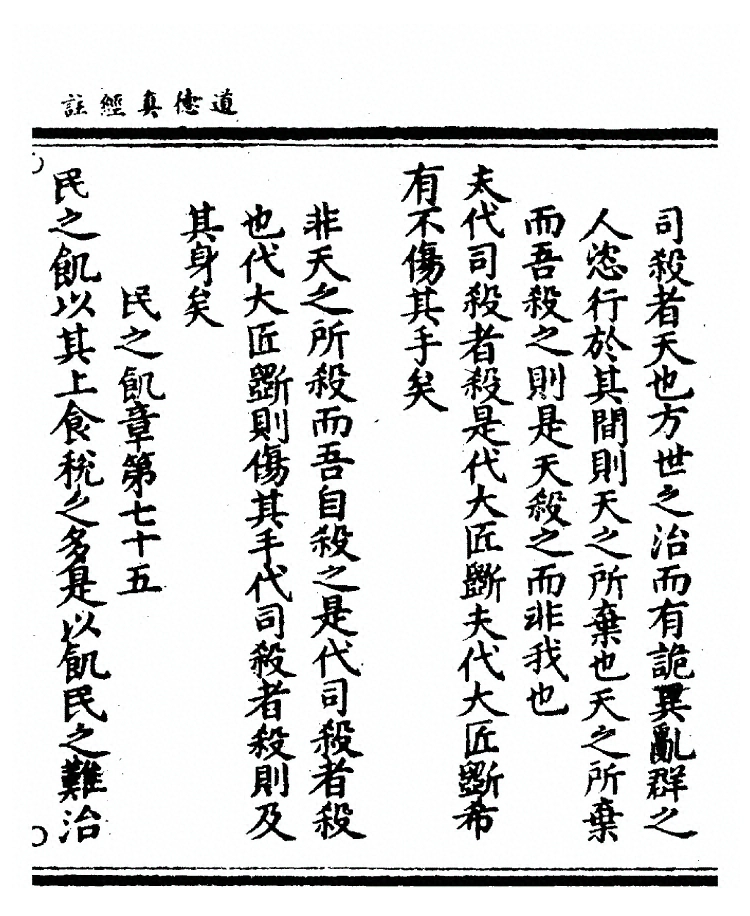 道德真經註
司殺者天也方世之治而有詭異亂群之
人恣行於其間則天之所棄也天之所棄
而吾殺之則是天殺之而非我也
夫代司殺者殺是代大匠斲夫代大匠斲希
有不傷其手矣
非天之所殺而吾自殺之是代司殺者殺
也代大匠斲則傷其手代司殺者殺則及
其身矣
民之飢章第七十五
民之飢以其上食稅之多是以飢民之難治